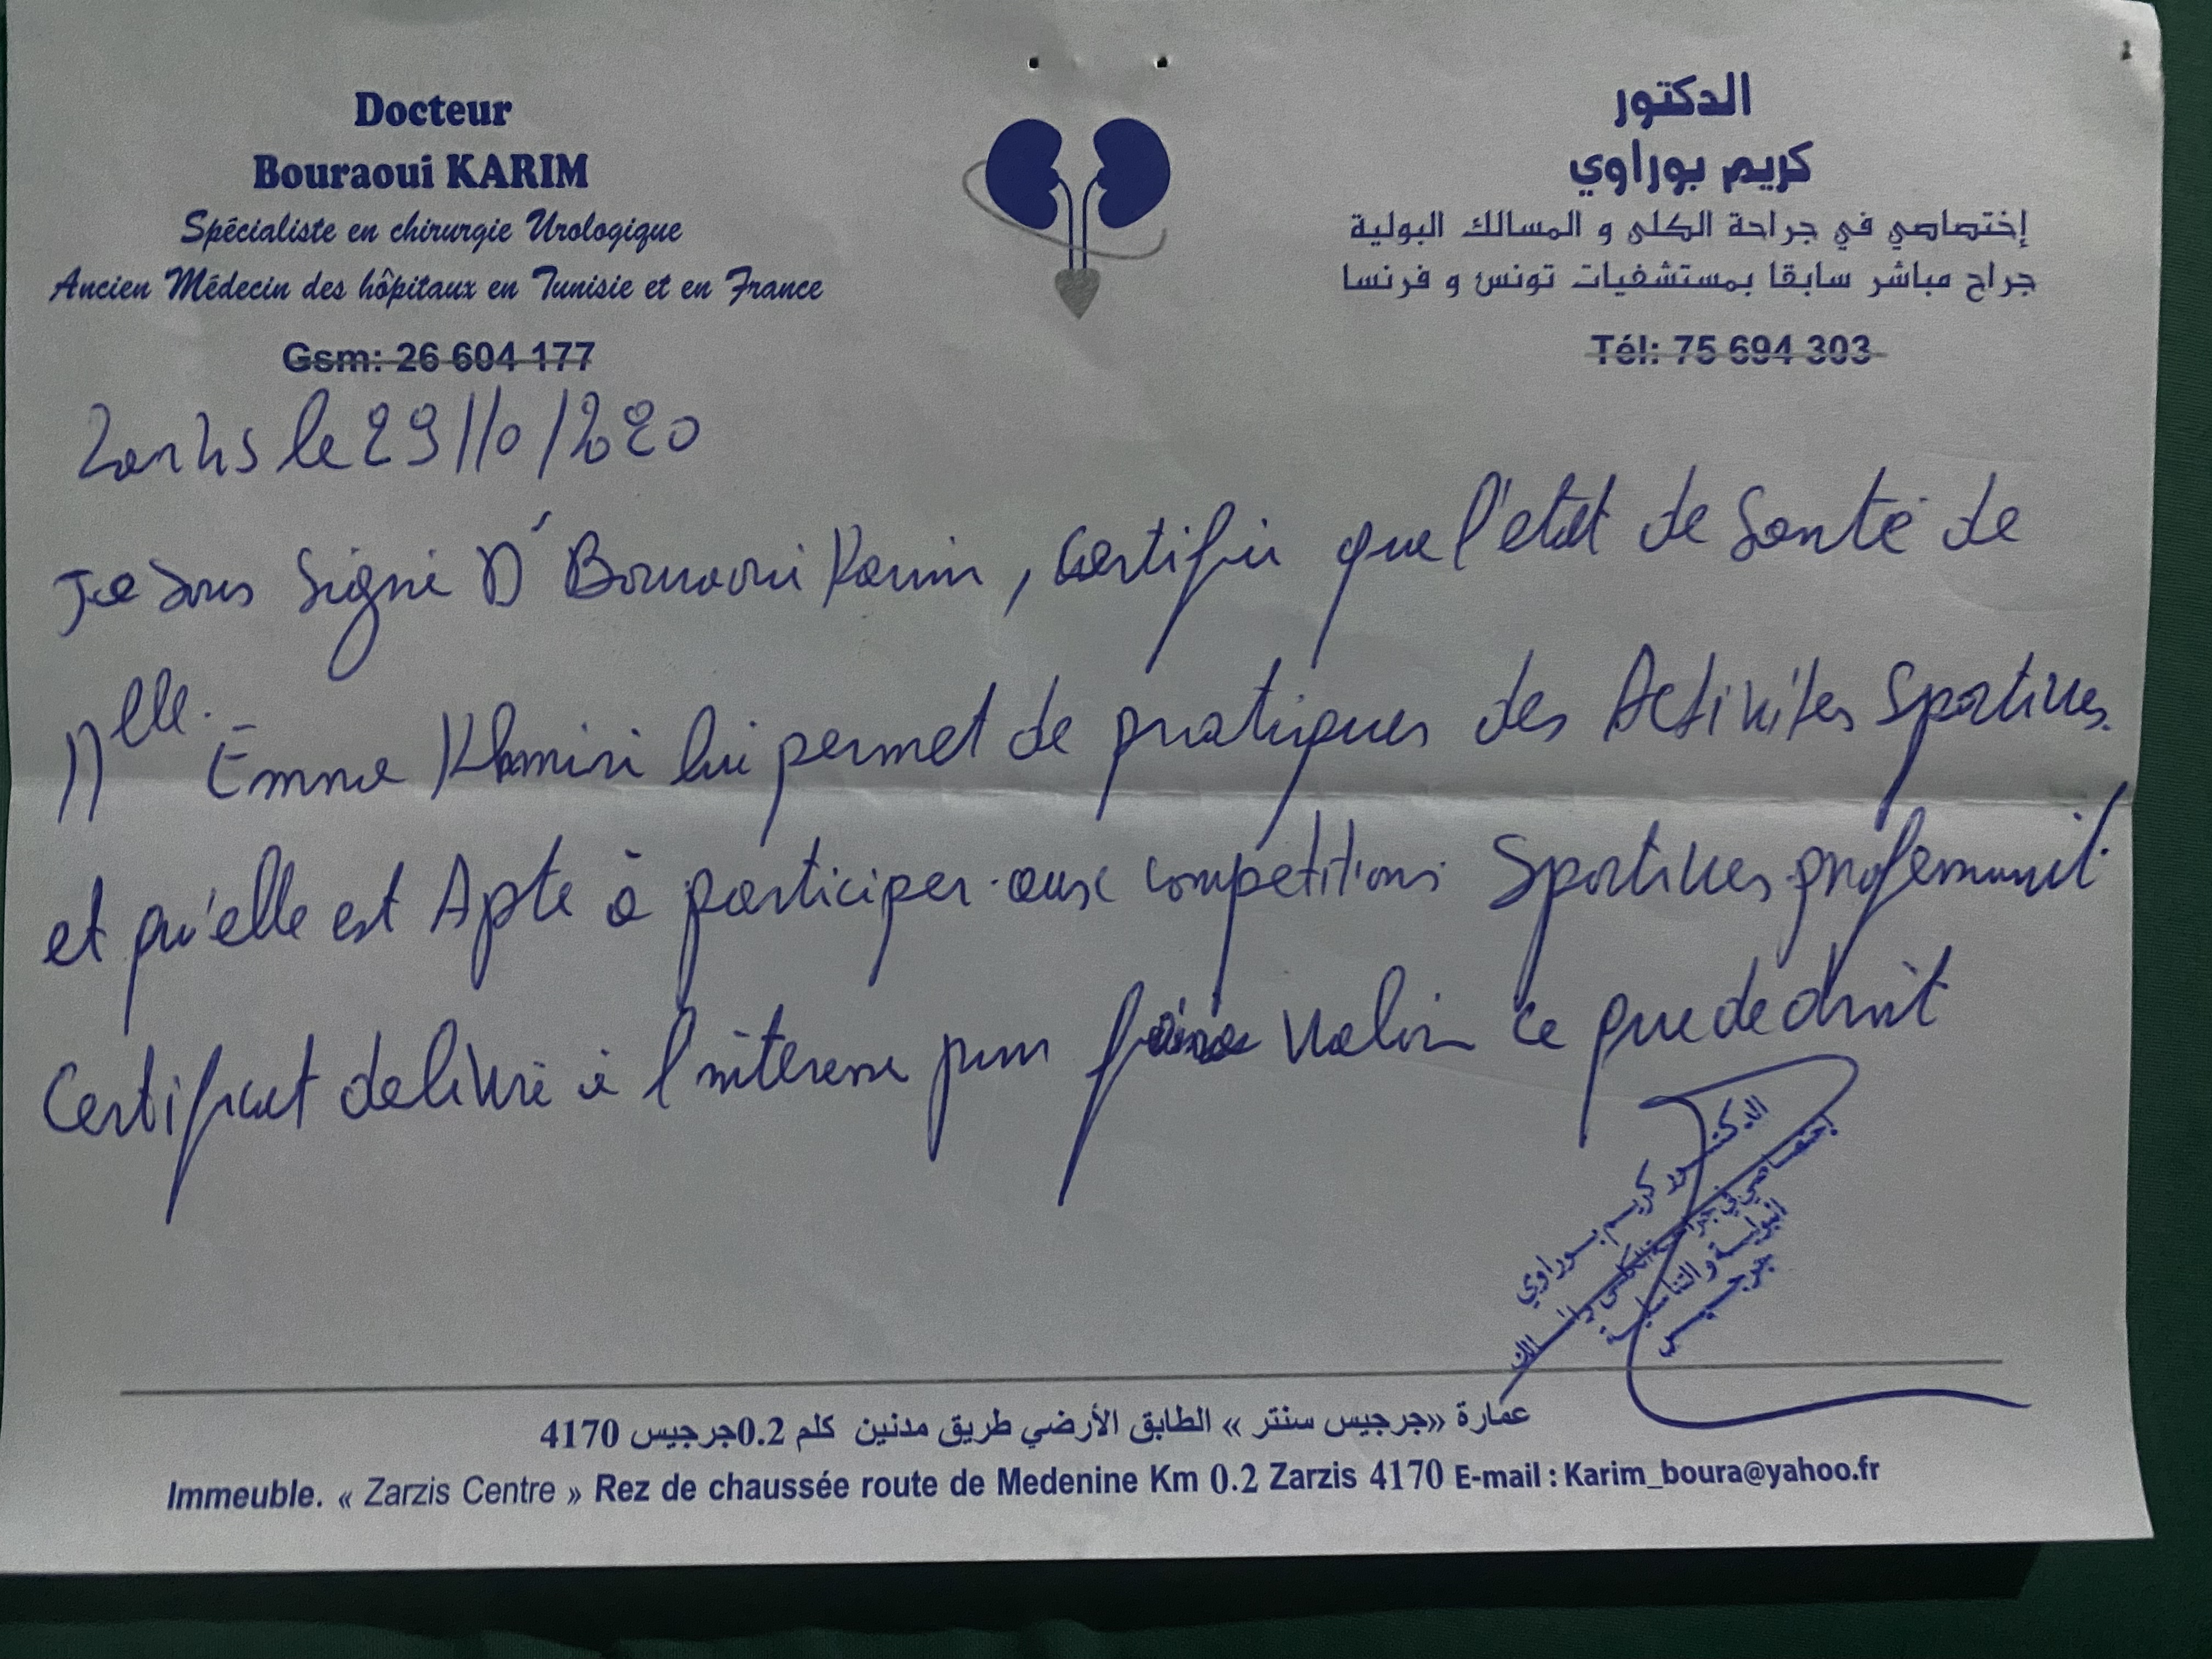 Docteur
Bouraoui KARIM
Spécialiste en chirurgie Urologique
Ancien Médecin des hôpitaux en Tunisie et en France
Gsm: 26 604 177
الدكتور
كريم بوراوي
إختصاصي في جراحة الكلى و المسالك البولية
جراح مباشر سابقا بمستشفيات تونس و فرنسا
Tél: 75 694 303
Zarzis le 29/10/2020
Je sous signé Dr Bouraoui Karim, certifie que l'etat de Santé de
Melle. Emna Khmiri lui permet de pratiquer des Activités Sportives
et qu'elle est Apte à participer aux compétitions Sportives
Certificat delivré à l'intéressé pour faire valoir ce que de droit
الدكتور كريم بوراوي
إختصاصي في جراحة الكلى والمسالك
البولية والتناسلية
جرجيس
عمارة «جرجيس سنتر » الطابق الأرضي طريق مدنين كلم 0.2جرجيس 4170
Immeuble. « Zarzis Centre » Rez de chaussée route de Medenine Km 0.2 Zarzis 4170 E-mail : Karim_boura@yahoo.fr